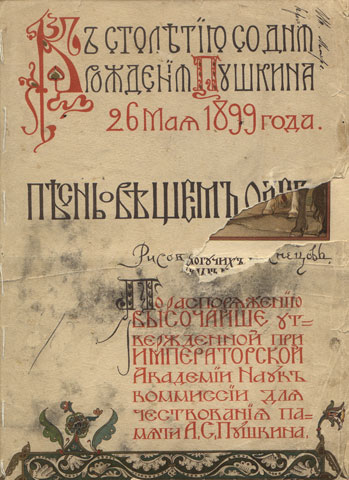 Къ столѣтію со дня
рожденія Пушкина
26 мая 1899 года.
Пѣснь о вѣщемъ Олег
Рисов
могучихъ
снецовъ.
По распоряженію
высочайше ут=
вержденной при
Императорской
Академіи Наукъ
коммиссіи для
чествованія па=
мяти А.С.Пушкина.